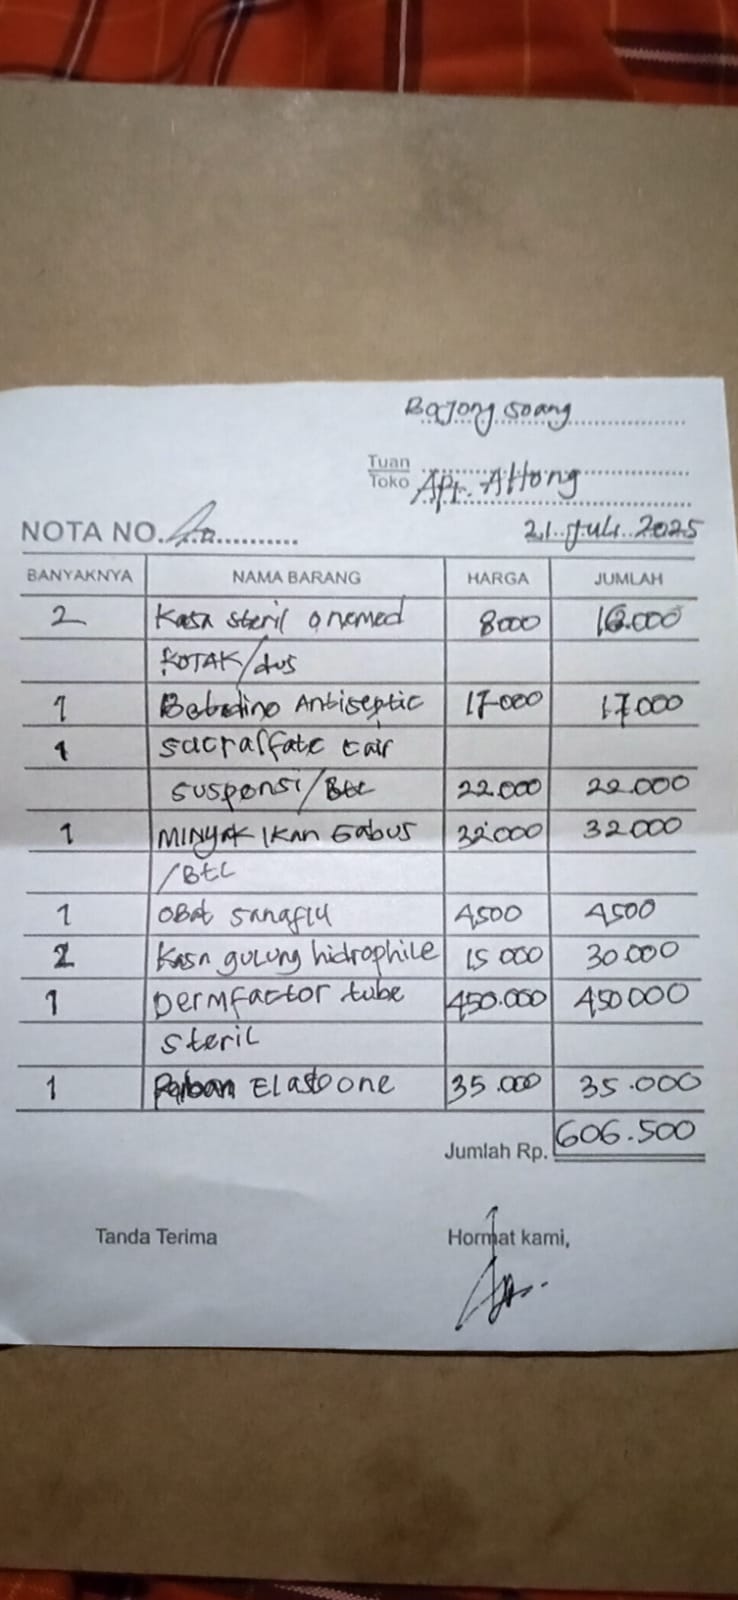 Bojong soang
Tuan
Toko Apt. Attong
NOTA NO.
21 Juli 2025
BANYAKNYA NAMA BARANG HARGA JUMLAH
2 Kasa steril onemed 8000 16.000
KOTAK/dus
1 Betadine Antiseptic 17.000 17.000
1 Sucralfate cair
suspensi/Btl 22.000 22.000
1 MINYAK IKan Gabus 32.000 32.000
/BtL
1 OBat sanaflu 4500 4500
2 Kasa gulung hidrophile 15 000 30.000
1 Dermfactor tube 450.000 450000
steril
1 Perban Elastoone 35.000 35.000
Jumlah Rp. 606.500
Tanda Terima Hormat kami,